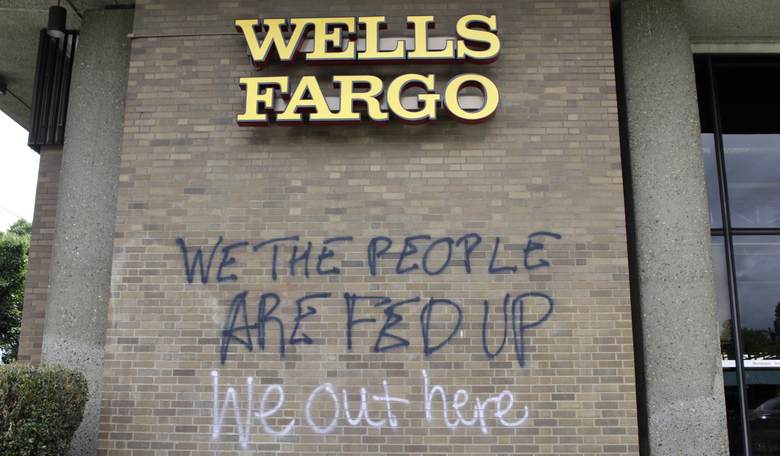 WELLS
FARGO
WE THE PEOPLE
ARE FED UP
We out here